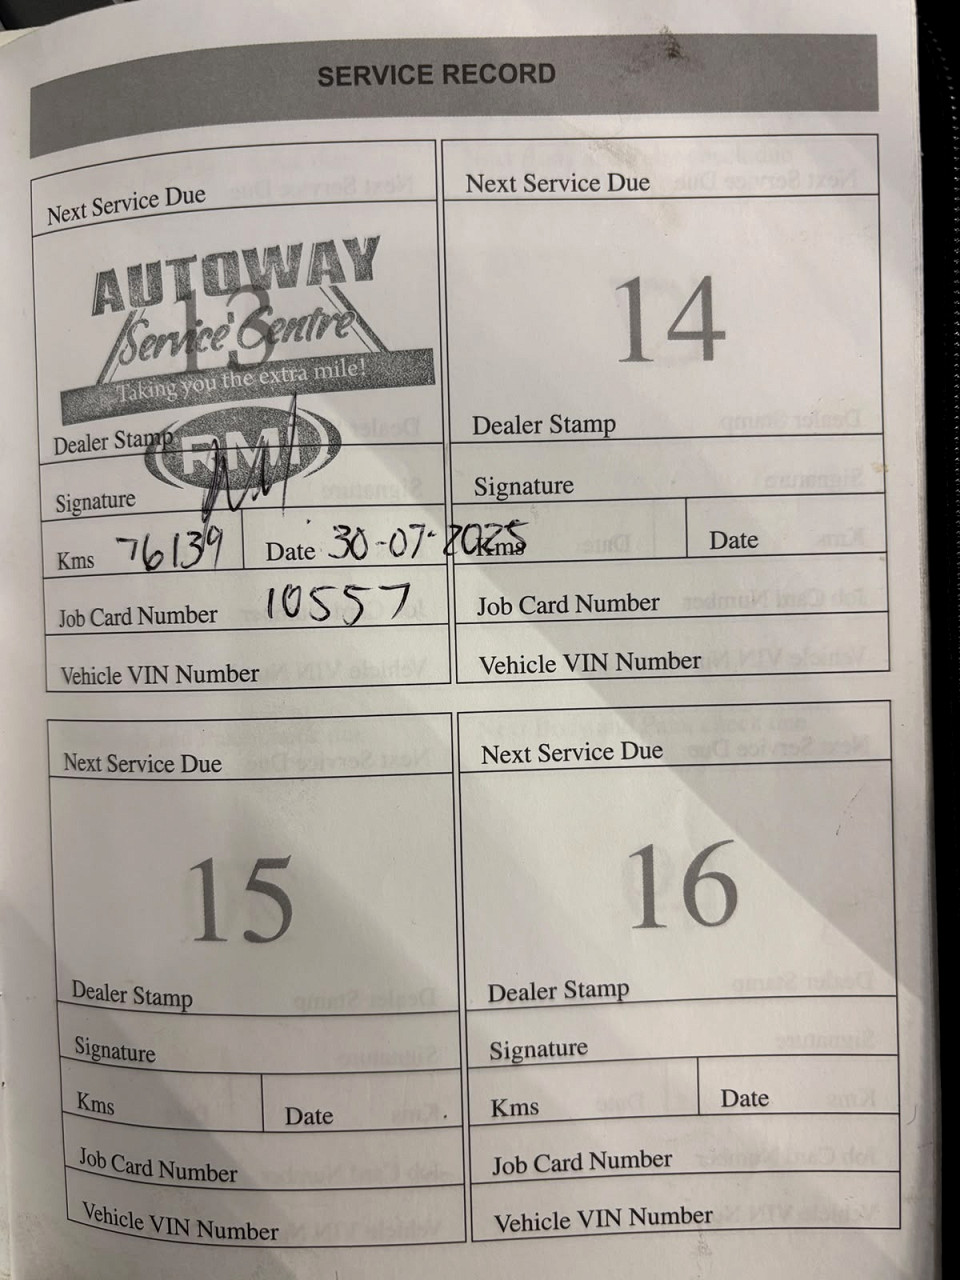 SERVICE RECORD
Next Service Due
AUTOWAY
13
Service Centre
Taking you the extra mile!
RMI
Dealer Stamp
Signature
Kms 76139 Date 30-07-2025
Job Card Number 10557
Vehicle VIN Number
Next Service Due
14
Dealer Stamp
Signature
Kms Date
Job Card Number
Vehicle VIN Number
Next Service Due
15
Dealer Stamp
Signature
Kms Date
Job Card Number
Vehicle VIN Number
Next Service Due
16
Dealer Stamp
Signature
Kms Date
Job Card Number
Vehicle VIN Number